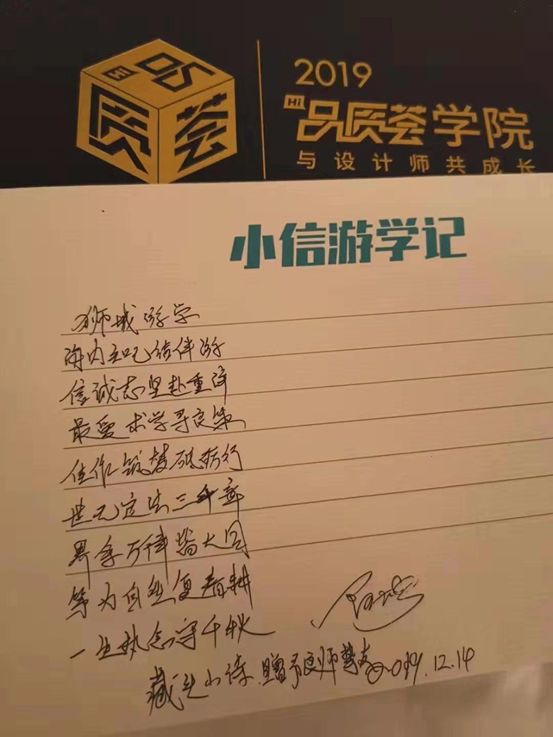 Hi 品质荟
2019
Hi 品质荟学院
与设计师共成长
小信游学记
狮城游学
海内知己结伴游
信诚志坚赴重洋
最爱求学寻良策
佳作筑梦砥砺行
世无定法三千章
界 万律皆大同
为自然复 耕
一生执念 千秋
藏头小诗,赠予良师挚友 2019.12.14